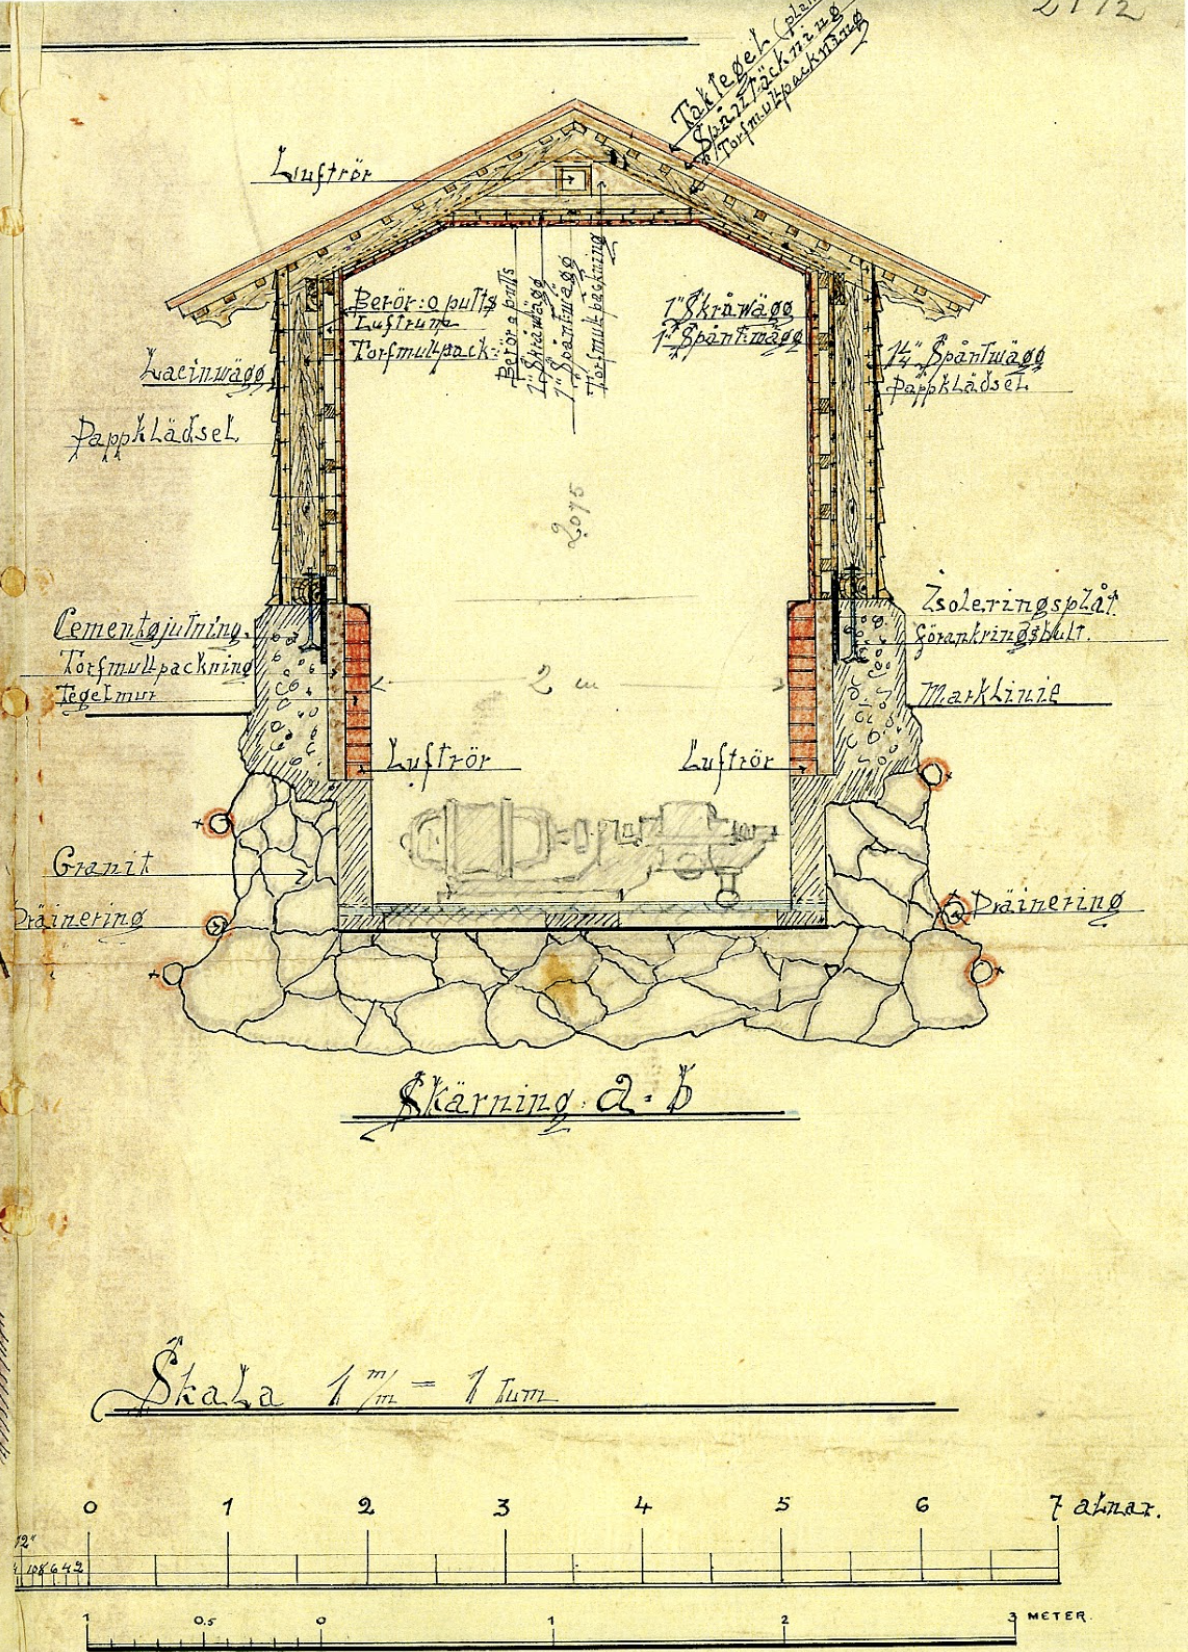 2172
Taktegel (plan
Spåntäckning
Torfmullpackning
Luftrör
Berör: o putts
Luftrum
Torfmullpack:
Berör o putts
1" Skråwägg
1" Spåntwägg
Torfmultpackning
1" Skråwägg
1" Spåntwägg
1¼" Spåntwägg
Pappklädsel
Pappklädsel
2075
Cementgjutning.
Torfmullpackning
Tegelmur
Isoleringsplåt.
Förankringsbult.
2 m
Marklinie
Luftrör
Luftrör
Granit
Dräinering
Dräinering
Skärning. a. b
Skala 1 m/m = 1 tum
0 1 2 3 4 5 6 7 alnar.
12"
10 8 6 4 2
1 0.5 0 1 2 3 METER.